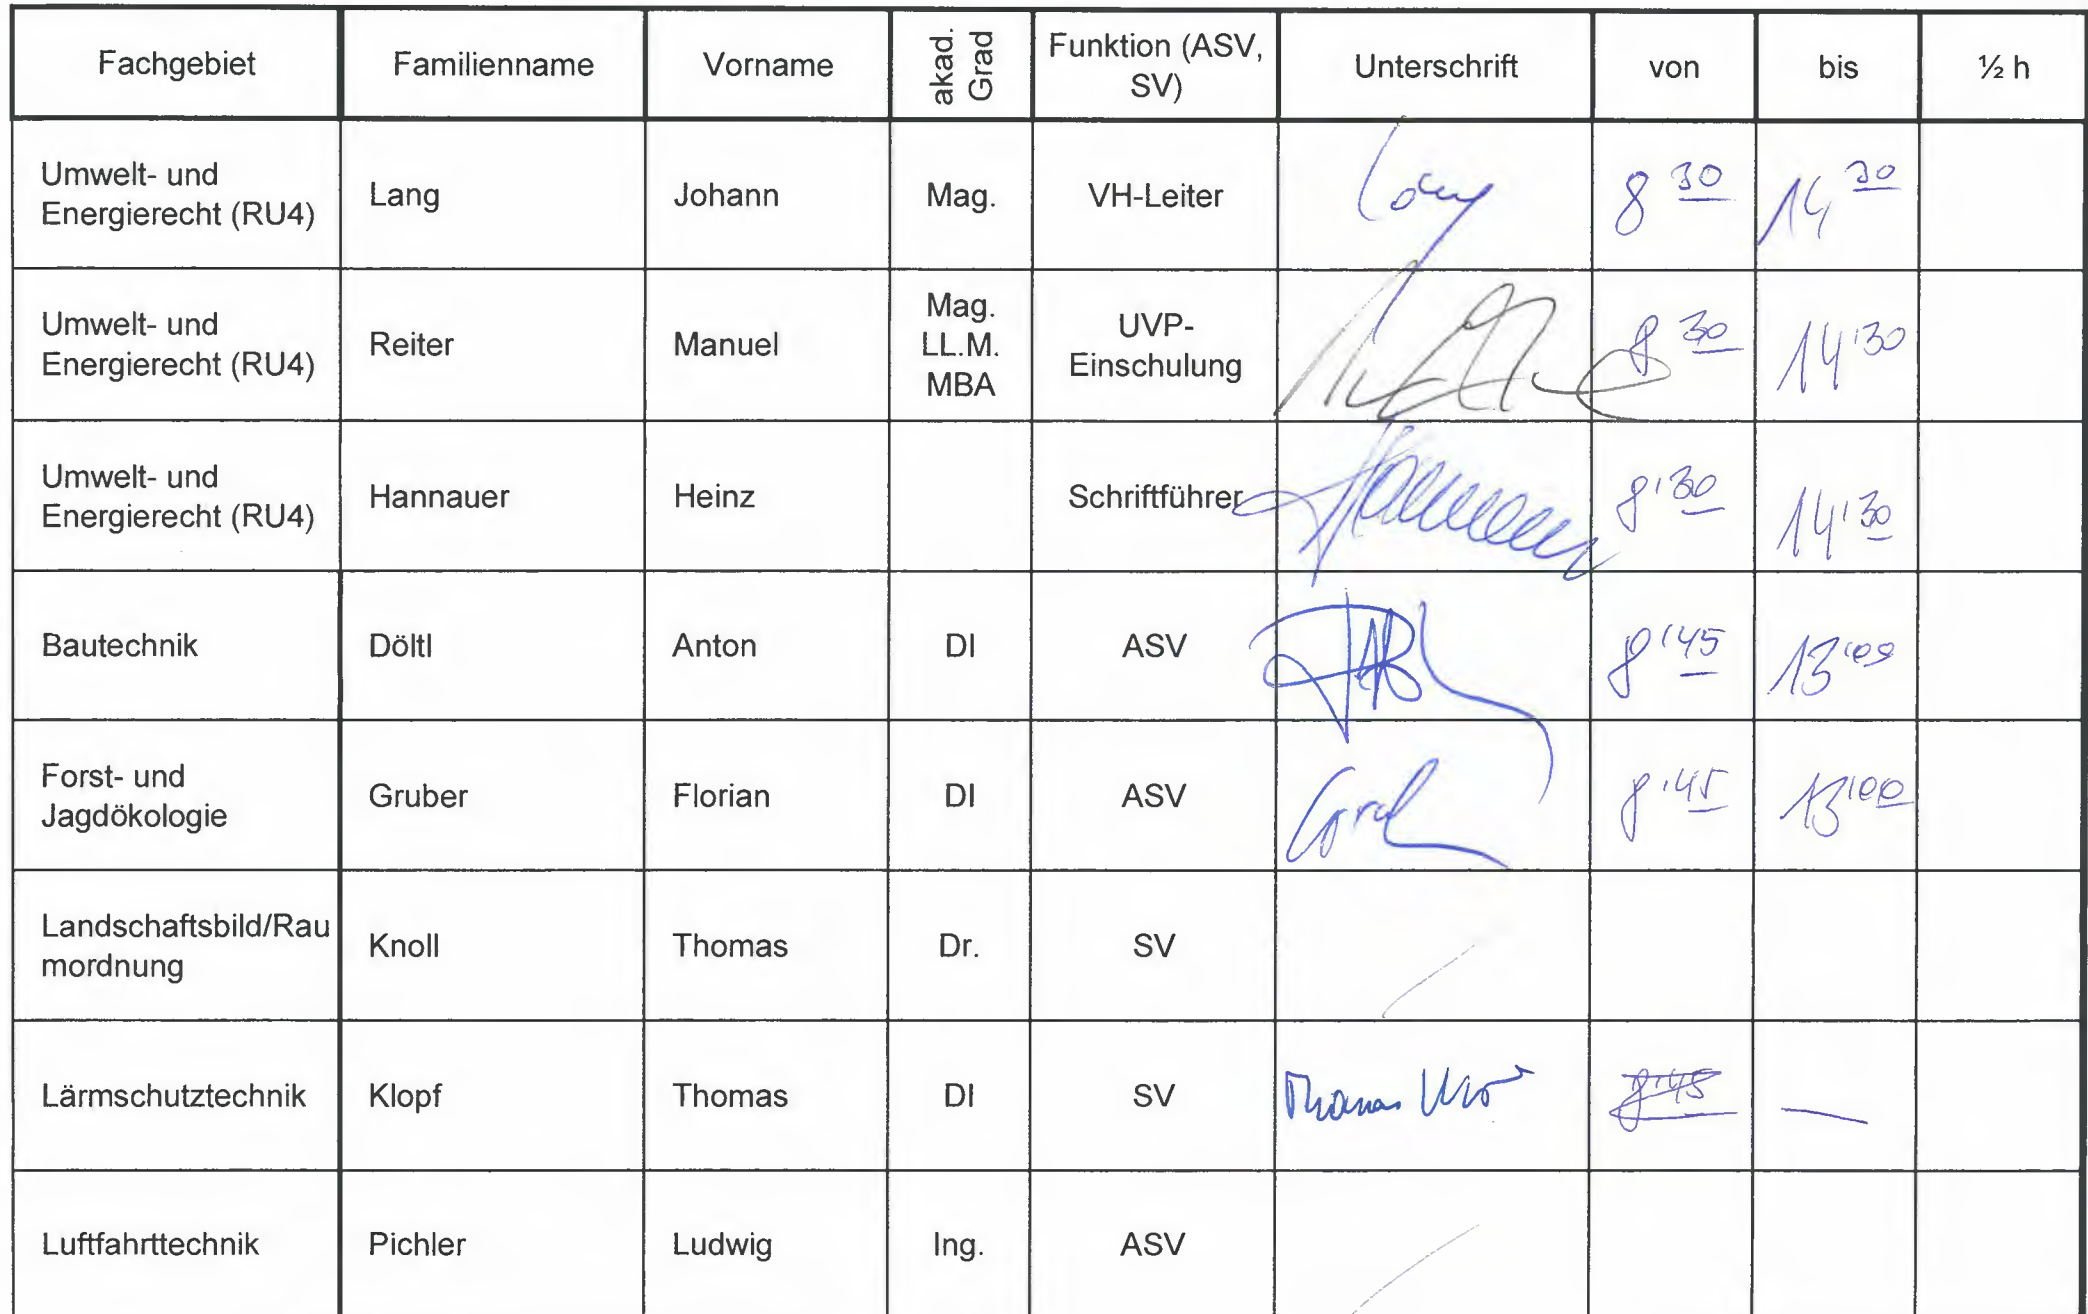 Fachgebiet Familienname Vorname akad. Grad Funktion (ASV, SV) Unterschrift von bis ½ h
Umwelt- und
Energierecht (RU4) Lang Johann Mag. VH-Leiter Lang 8 30 14 30
Umwelt- und
Energierecht (RU4) Reiter Manuel Mag. LL.M. MBA UVP-Einschulung 8 30 14'30
Umwelt- und
Energierecht (RU4) Hannauer Heinz Schriftführer 8'30 14'30
Bautechnik Döltl Anton DI ASV 8'45 13'00
Forst- und
Jagdökologie Gruber Florian DI ASV 8'45 13'00
Landschaftsbild/Rau
mordnung Knoll Thomas Dr. SV
Lärmschutztechnik Klopf Thomas DI SV Thomas 8'45 —
Luftfahrttechnik Pichler Ludwig Ing. ASV